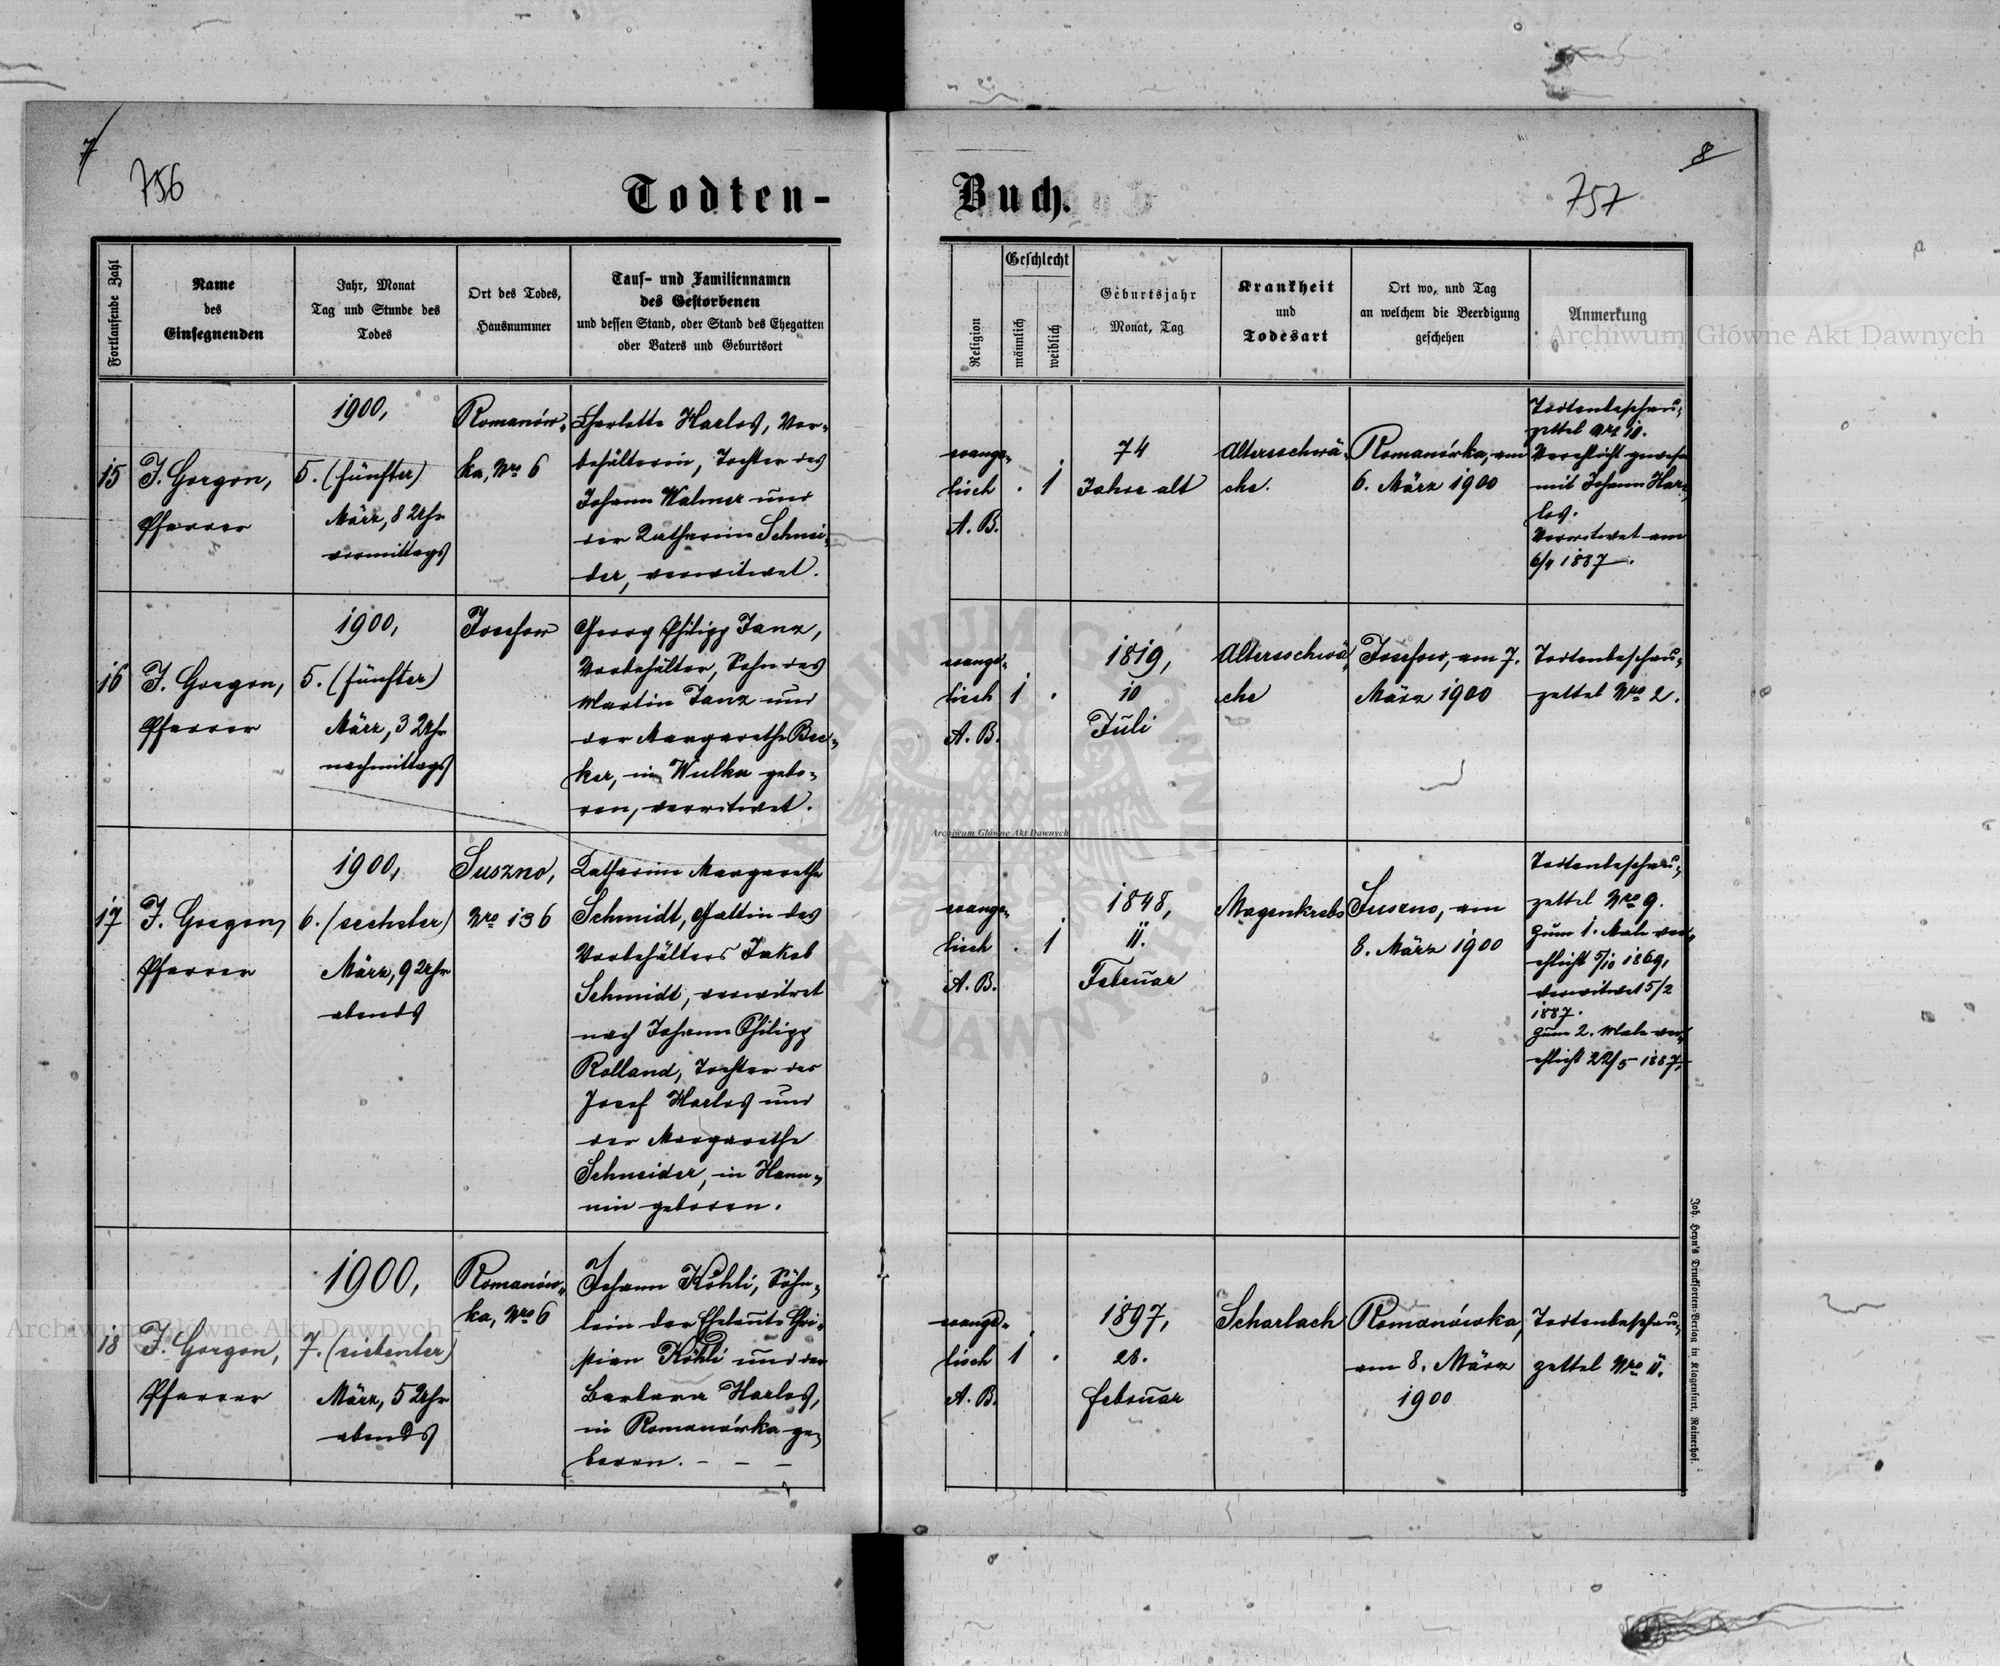 7
756
Todten-
Buch.
8
757
Fortlaufende Zahl
Name
des
Einsegnenden
Jahr, Monat
Tag und Stunde des
Todes
Ort des Todes,
Hausnummer
Tauf- und Familiennamen
des Gestorbenen
und dessen Stand, oder Stand des Ehegatten
oder Vaters und Geburtsort
Religion
Geschlecht
männlich
weiblich
Geburtsjahr
Monat, Tag
Krankheit
und
Todesart
Ort wo, und Tag
an welchem die Beerdigung
geschehen
Anmerkung
Archiwum Główne Akt Dawnych
15
J. Gorgon,
Pfarrer
1900,
5. (fünfter)
März, 8 Uhr
vormittags
Romanów-
ka, Nro 6
Charlotte Harlos, Vor-
behälterin, Tochter des
Johann Walmer und
der Katharina Schnei-
der, verwitwet.
evange-
lisch
A. B.
. 1
74
Jahre alt
Altersschwä-
che.
Romanówka, am
6. März 1900
Todtenbeschau-
zettel Nro 10.
Verehlicht gewesen
mit Johann Har-
los.
Verwitwet am
1887.
16
J. Gorgon,
Pfarrer
1900,
5. (fünfter)
März, 3 Uhr
nachmittags
Josefow
Georg Philipp Janz,
Vorbehälter, Sohn des
Martin Janz und
der Margarethe Bec-
ker, in Wulka gebo-
ren, verwitwet.
evange-
lisch
A. B.
1 .
1819,
10
Juli
Altersschwä-
che
Josefow, am 7.
März 1900
Todtenbeschau-
zettel Nro 2.
Archiwum Główne Akt Dawnych
17
J. Gorgon,
Pfarrer
1900,
6. (sechster)
März, 9 Uhr
abends
Suszno,
Nro 136
Katharina Margarethe
Schmidt, Gattin des
Vorbehälters Jakob
Schmidt, verwitwet
nach Johann Philipp
Rolland, Tochter des
Josef Harlos und
der Margarethe
Schneider, in Hanu-
nin geboren.
evange-
lisch
A. B.
. 1
1848,
11.
Februar
Magenkrebs
Suszno, am
8. März 1900
Todtenbeschau-
zettel Nro 9.
Zum 1. Male ver-
ehlicht 5/10 1869,
verwitwet 5/2
1887.
Zum 2. Male ver-
ehlicht 22/5 1887.
18
J. Gorgon,
Pfarrer
1900,
7. (siebenter)
März, 5 Uhr
abends
Romanów-
ka, Nro 6
Johann Köhli, Söhn-
lein der Eheleute Chri-
stian Köhli und der
Barbara Harlos,
in Romanówka ge-
boren. - - -
evange-
lisch
A. B.
1 .
1897,
28.
Februar
Scharlach
Romanówka,
am 8. März
1900
Todtenbeschau-
zettel Nro 11.
Archiwum Główne Akt Dawnych
Joh. Heyn's Drucksorten-Verlag in Klagenfurt, Rainerhof.
ARCHIWUM GŁÓWNE AKT DAWNYCH